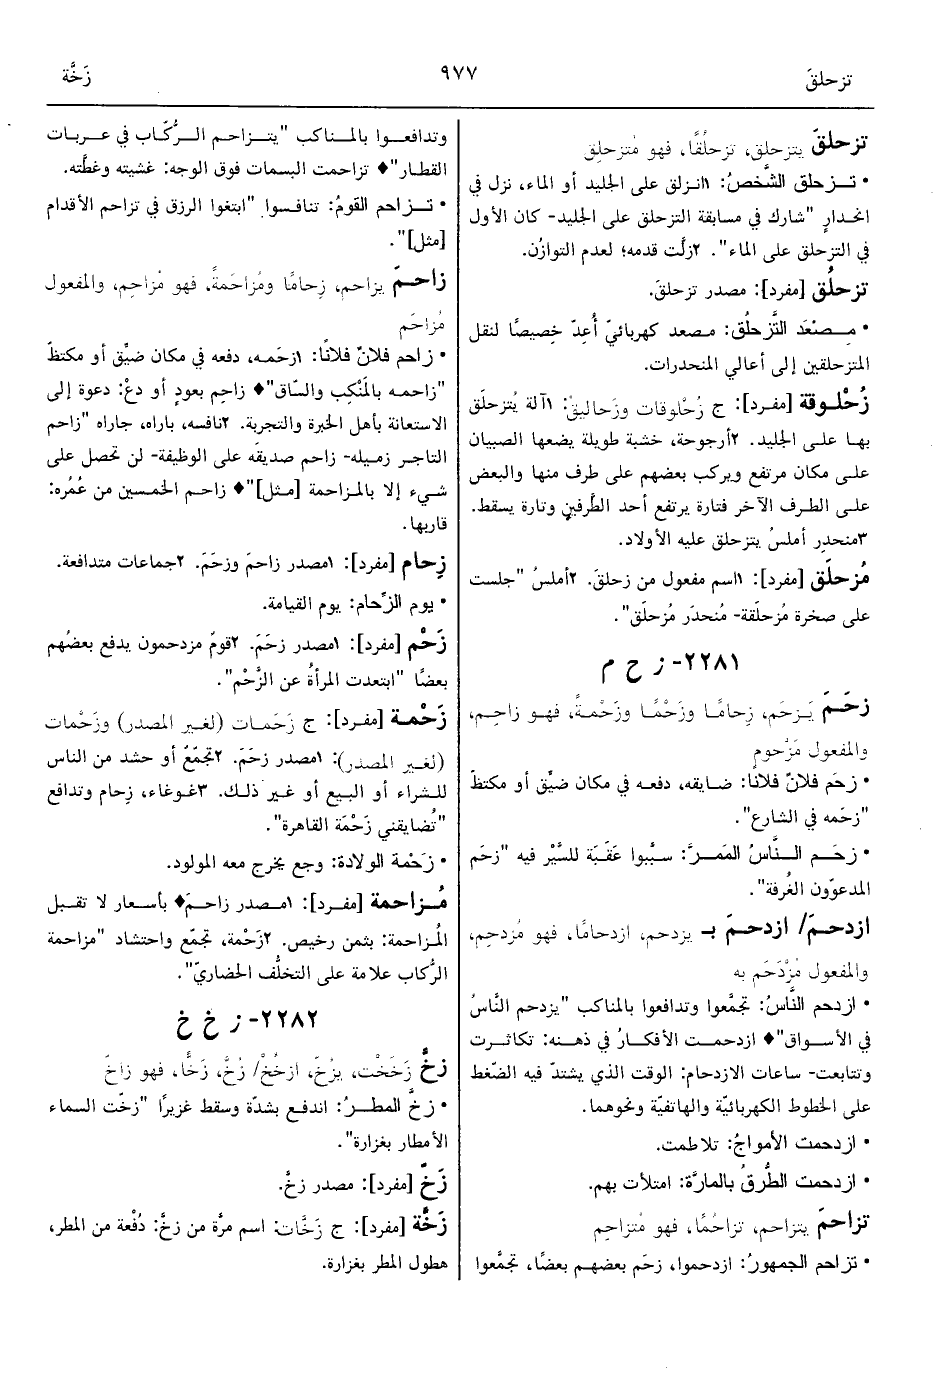 تزحلقَ
٩٧٧
زَخَّة
تزحلقَ يتزحلق، تزحلُقًا، فهو مُتزحلِق
• تـزحلق الشَّخصُ: ١انـزلق على الجليد أو الماء، نزل في
انحدارٍ "شارك في مسابقة التزحلق على الجليد- كان الأول
في التزحلق على الماء". ٢زلَّت قدمه؛ لعدم التوازُن.
تزحلُق [مفرد]: مصدر تزحلقَ.
• مـصْعَد التَّزحلُق: مـصعد كهربائيّ أُعِدّ خِصيصًا لنقل
المتزحلقين إلى أعالي المنحدرات.
زُحْلـوقة [مفـرد]: ج زُحْلوقات وزَحاليقُ: ١آلة يُتزحلَق
بهـا علـى الجليد. ٢أرجوحة، خشبة طويلة يضعها الصبيان
علـى مكان مرتفع ويركب بعضهم على طرف منها والبعض
علـى الطرف الآخر فتارة يرتفع أحد الطَّرفينِ وتارة يسقط.
٣منحدرٍ أملسُ يتزحلق عليه الأولاد.
مُزحلَق [مفرد]: ١اسم مفعول من زحلقَ. ٢أملسُ "جلست
على صخرة مُزحلَقة- مُنحدَر مُزحلَق".
٢٢٨١- ز ح م
زحَـمَ يَـزحَم، زِحامـًا وزَحْمًـا وزَحْمـةً، فهـو زاحِـم،
والمفعول مَزْحوم
• زحَم فلانٌ فلانًا: ضـايقه، دفعـه في مكان ضيِّق أو مكتظّ
"زحَمه في الشارع".
• زحَـم الـنَّاسُ المَمـرَّ: سـبَّبوا عَقَبَة للسَّيْر فيه "زحَم
المدعوّون الغُرفة".
ازدحـمَ/ ازدحـمَ بـ يزدحم، ازدحامًـا، فهو مُزدحِم،
والمفعول مُزْدَحَم به
• ازدحم النَّاسُ: تجمَّعوا وتدافعوا بالمناكب "يزدحم النَّاسُ
في الأسـواق"♦ ازدحمـت الأفكـارُ في ذهـنه: تكاثـرت
وتتابعت- ساعات الازدحام: الوقت الذي يشتدّ فيه الضّغط
على الخطوط الكهربائيّة والهاتفيّة ونحوهما.
• ازدحمت الأمواجُ: تلاطمت.
• ازدحمت الطُّرقُ بالمارَّة: امتلأت بهم.
تزاحمَ يتزاحم، تزاحُمًا، فهو مُتزاحِم
• تزاحم الجمهورُ: ازدحموا، زحَم بعضهـم بعضًا، تجمَّعوا
وتدافعـوا بالمـناكب "يتـزاحـم الـرُّكّاب في عـربات
القطـار"♦ تزاحمت البسمات فوق الوجه: غشيته وغطَّته.
• تـزاحم القومُ: تنافسـوا "ابتغوا الرزق في تزاحم الأقدام
[مثل]".
زاحـمَ يزاحم، زِحامًا ومُزاحَمةً، فهو مُزاحِم، والمفعول
مُزاحَم
• زاحم فلانٌ فلانًا: ١زحَمـه، دفعه في مكان ضيِّق أو مكتظّ
"زاحمـه بالمَنْكِب والسّاق"♦ زاحِم بعودٍ أو دعْ: دعوة إلى
الاستعانة بأهل الخبرة والتجربة. ٢نافسه، باراه، جاراه "زاحم
التاجـر زميله- زاحم صديقَه على الوظيفة- لن تحصل على
شـيء إلا بالمزاحمة [مثل]"♦ زاحـم الخمسين من عُمُره:
قاربها.
زِحام [مفرد]: ١مصدر زاحمَ وزحَمَ. ٢جماعات متدافعة.
• يوم الزِّحام: يوم القيامة.
زَحْم [مفرد]: ١مصدر زحَمَ. ٢قومٌ مزدحمون يدفع بعضُهم
بعضًا "ابتعدت المرأةُ عن الزَّحْم".
زَحْمـة [مفـرد]: ج زَحَمـات (لغيـر المصدر) وزَحْمات
(لغير المصدر): ١مصدر زحَمَ. ٢تجمّعٌ أو حشد من الناس
للـشراء أو البيع أو غير ذلـك. ٣غـوغاء، زِحام وتدافع
"تُضايقني زَحْمَة القاهرة".
• زَحْمة الولادة: وجع يخرج معه المولود.
مُـزاحمة [مفـرد]: ١مـصدر زاحـمَ♦ بأسـعار لا تقـبل
المُزاحمة: بثمن رخيص. ٢زَحْمة، تجمّع واحتشاد "مزاحمة
الرُّكاب علامة على التخلُّف الحضاريّ".
٢٢٨٢- ز خ خ
زخَّ زَخَخْت، يزُخّ، ازخُخْ/ زُخَّ، زَخًّا، فهو زاخّ
• زخَّ المطـرُ: اندفع بشدّة وسقط غزيرًا "زخّت السماء
الأمطار بغزارة".
زَخّ [مفرد]: مصدر زخَّ.
زَخَّة [مفرد]: ج زَخَّات: اسم مرَّة من زخَّ: دُفْعة من المطر،
هطول المطر بغزارة.